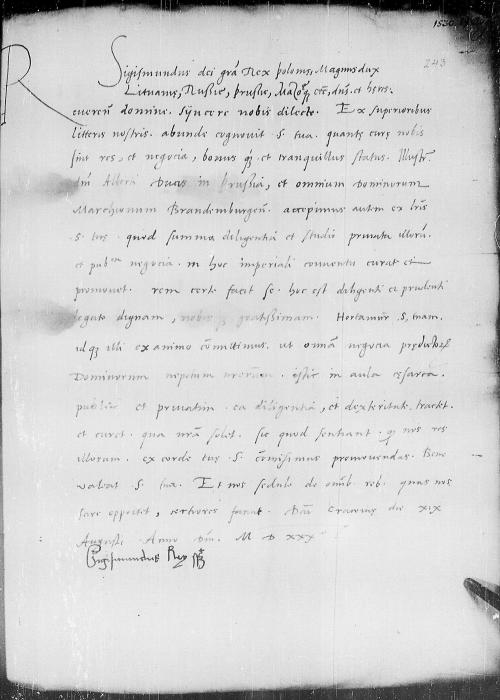 1530
243
Sigismundus dei grã Rex polonie, Magnus dux
Lituanie, Russie, prussie, Mazo. etc. dns. et heres.
Reueren domine. syncere nobis dilecte. Ex superioribus
litteris nostris. abunde cognouit S. tua. quante cure nobis
sint res, et negocia, bonus q3. et tranquillus status. Illustr.
dni Alberti Ducis in prussia, et omnium Dominorum
Marchionum Brandemburgen. accepimus autem ex lris
S. tue. quod summa diligentia et studio priuata illoru.
et pub^ca negocia. in hoc imperiali conuentu curat et
promouet. rem certe facit se. hoc est diligenti et prudenti
legato dignam, nobis gratissimam. Hortamur S. tuam.
idq3 illi ex animo comittimus. ut omia negocia predictor.
Dominorum nepotum nrorum. istic in aula cesarea.
publice et priuatim. ea diligentia, et dexteritate tractet.
et curet. qua nra solet. sic quod sentiant. nos res
illorum. ex corde tue. S. comisimus promouendas. Bene
valeat S. tua. Et nos sedulo de omib. reb. quas nos
scire oportet, certiores faciat. Dat Cracouie die xix
Augusti Anno Dni. M D XXX
Sigismundus Rex sspt